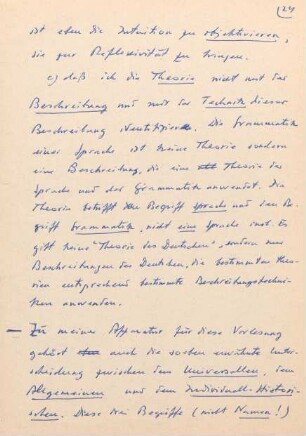 24
ist eben die Intuition zu objektivieren,
sie zur Reflexivität zu bringen.
c) daß ich die Theorie nicht mit der
Beschreibung und mit der Technik dieser
Beschreibung identifiziere. Die Grammatik
einer Sprache ist keine Theorie sondern
eine Beschreibung, die eine Theorie der
Sprache und der Grammatik anwendet. Die
Theorie betrifft den Begriff Sprache und den Be-
griff Grammatik, nicht eine Sprache inst. Es
gibt keine "Theorie des Deutschen", sondern nur
Beschreibungen des Deutschen, die bestimmten Theo-
rien entsprechend bestimmte Beschreibungstechni-
ken anwenden.
— Zu meiner Apparatur für diese Vorlesung
gehört auch die soeben erwähnte Unter-
scheidung zwischen dem Universellen, dem
Allgemeinen und dem Individuell-Histori-
schen. Diese drei Begriffe (nicht Namen!)